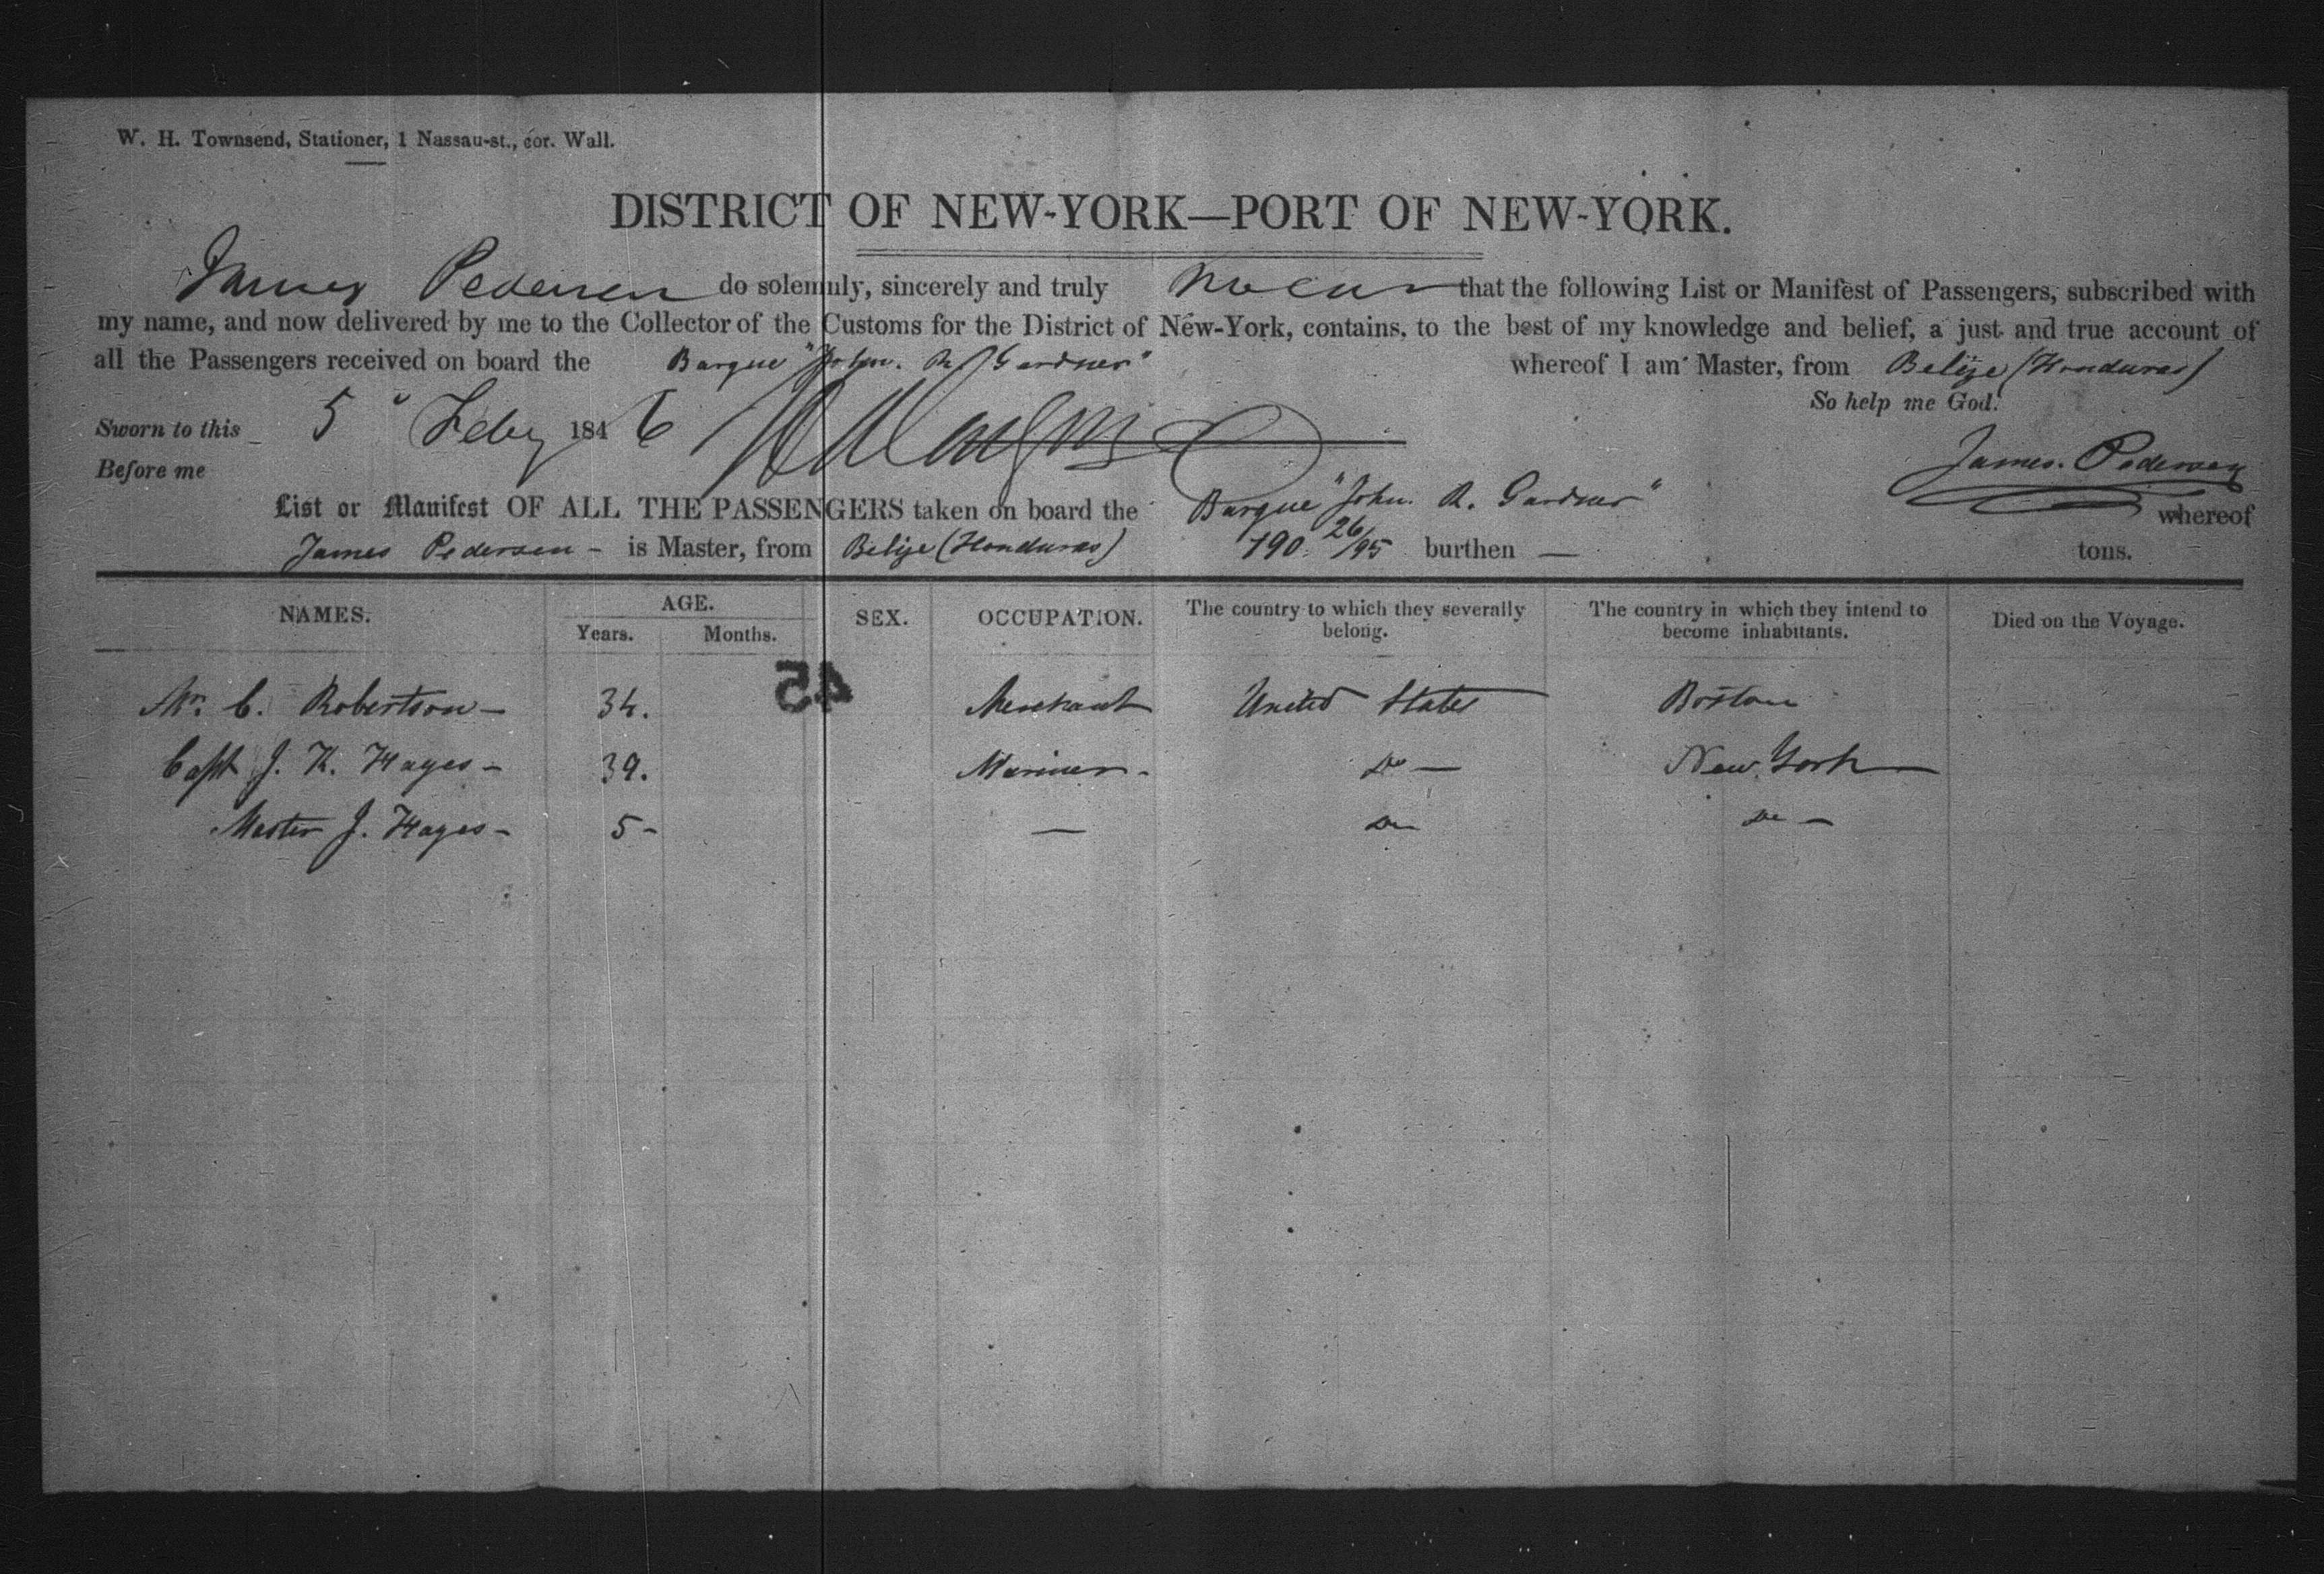 W. H. Townsend, Stationer, 1 Nassau-st., cor. Wall.
DISTRICT OF NEW-YORK—PORT OF NEW-YORK.
James Pedersen do solemnly, sincerely and truly swear that the following List or Manifest of Passengers, subscribed with
my name, and now delivered by me to the Collector of the Customs for the District of New-York, contains, to the best of my knowledge and belief, a just and true account of
all the Passengers received on board the Barque "John. R. Gardner" whereof I am Master, from Belize (Honduras)
So help me God.
Sworn to this 5" Feby 1846
James. Pedersen
Before me
List or Manifest OF ALL THE PASSENGERS taken on board the Barque "John. R. Gardner" whereof
James Pedersen - is Master, from Belize (Honduras) 190. 26/95 burthen — tons.
NAMES. AGE. SEX. OCCUPATION. The country to which they severally belong. The country in which they intend to become inhabitants. Died on the Voyage.
Years. Months.
45
Mr. C. Robertson - 34. Merchant United States Boston
Capt J. K. Hayes - 39. Mariner - Do — New York —
Master J. Hayes - 5 - — Do Do —